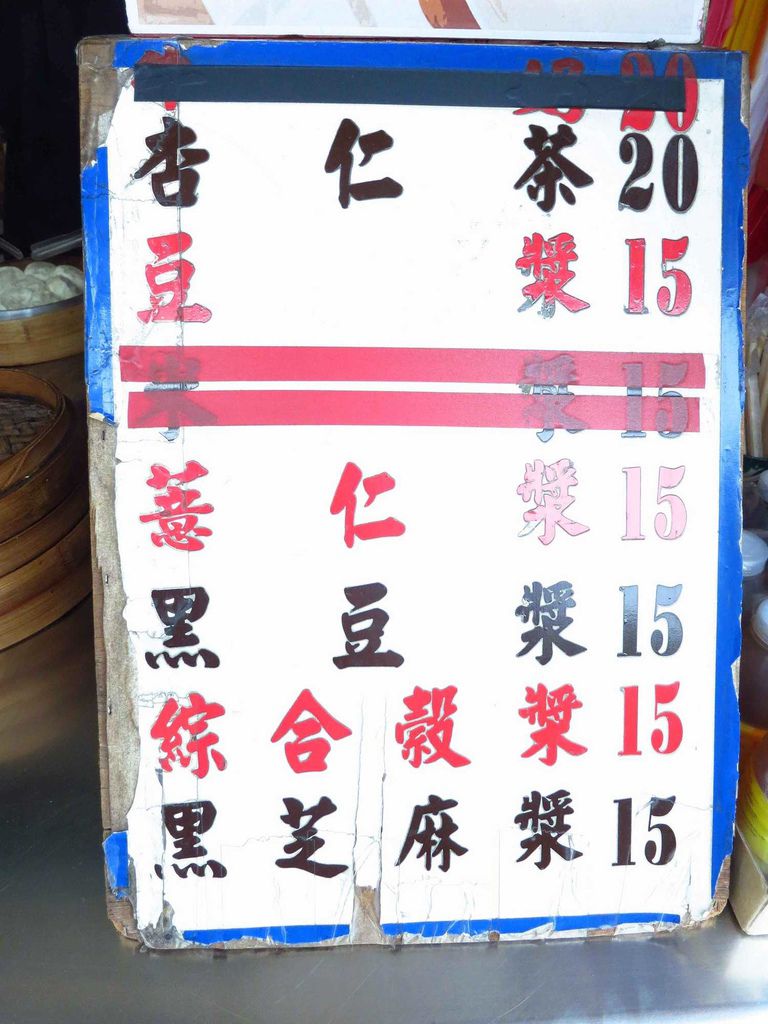 20
杏仁茶 20
豆漿 15
米漿 15
薏仁漿 15
黑豆漿 15
綜合穀漿 15
黑芝麻漿 15